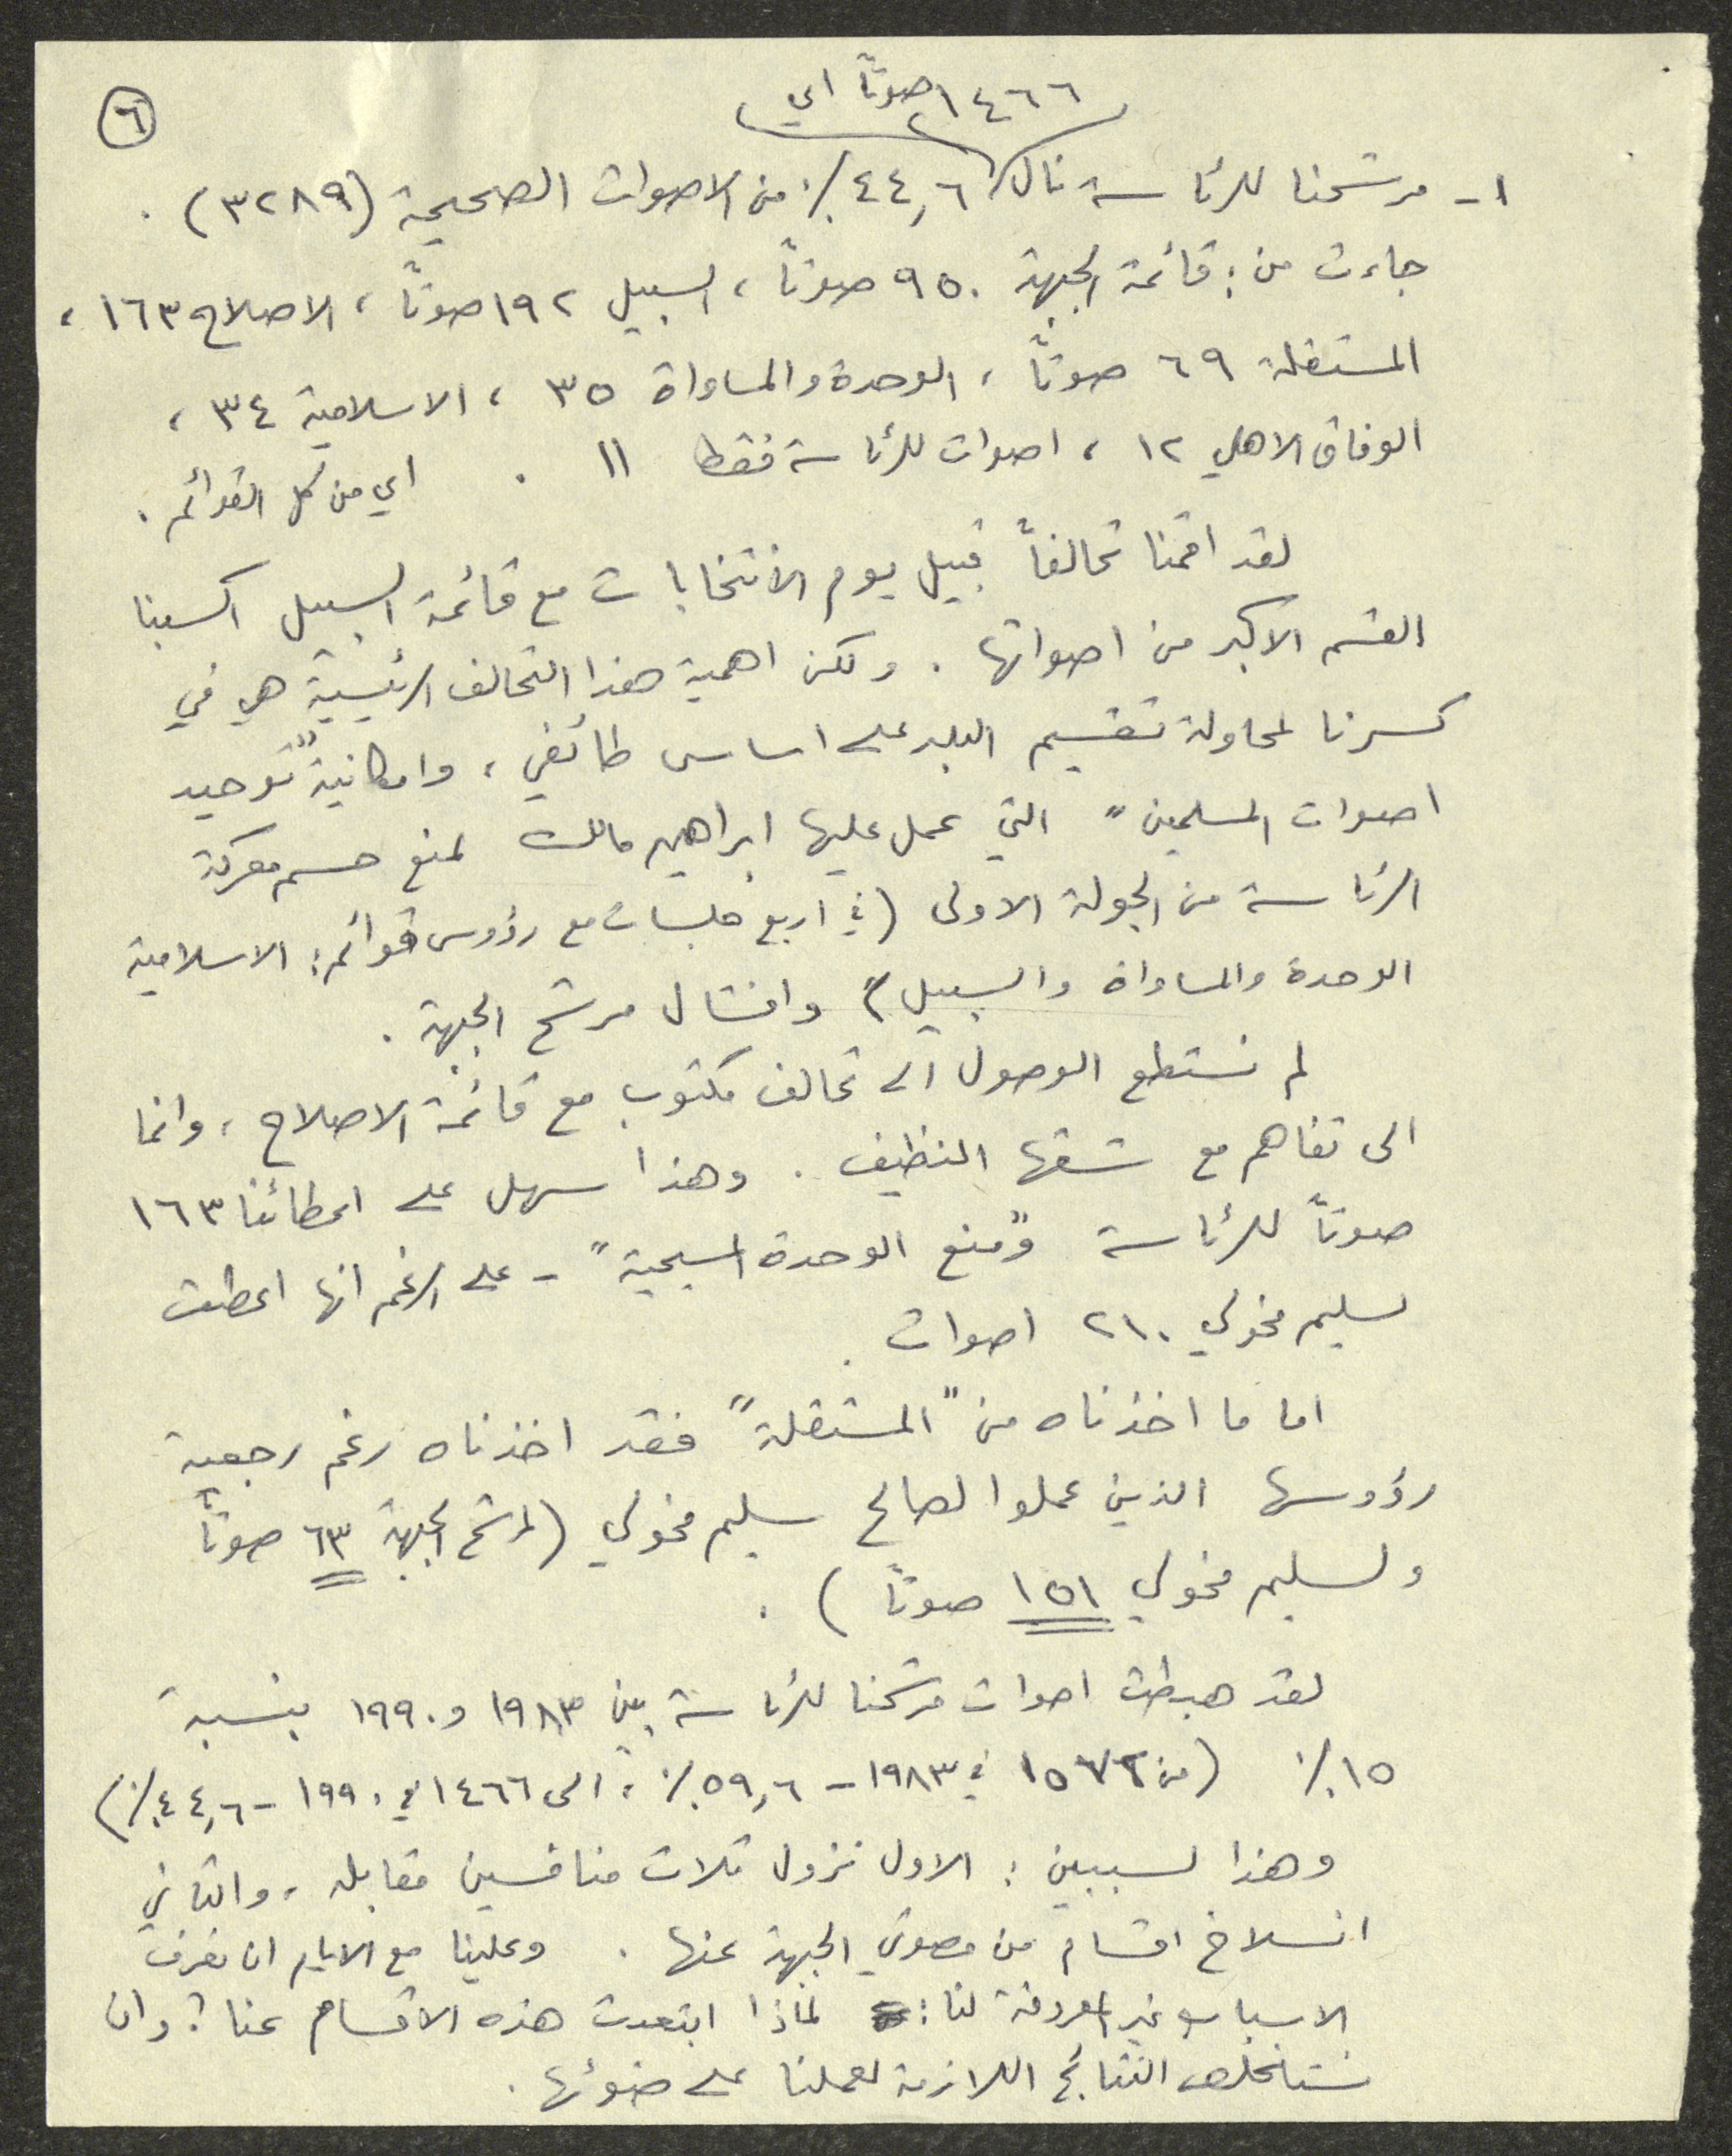 ٦
١٤٦٦ صوتاً اي
١- مرشحنا للرئاسة نال ٤٤,٦٪ من الاصوات الصحيحة (٣٢٨٩) .
جاءت من: قائمة الجبهة ٩٥٠ صوتاً ، السبيل ١٩٢ صوتاً ، الاصلاح ١٦٣ ،
المستقلة ٦٩ صوتاً ، الوحدة والمساواة ٣٥ ، الاسلامية ٣٤ ،
الوفاق الاهلي ١٢ ، اصوات للرئاسة فقط ١١ . اي من كل القوائم .
لقد اقمنا تحالفاً قبيل يوم الانتخابات مع قائمة السبيل اكسبنا
القسم الاكبر من اصواتها . ولكن اهمية هذا التحالف الرئيسية هي في
كسرنا لمحاولة تقسيم البلد على اساس طائفي ، وامكانية "توحيد
اصوات المسلمين" التي عمل عليها ابراهيم مالك لمنع حسم معركة
الرئاسة من الجولة الاولى (في اربع جلسات مع رؤوس قوائم: الاسلامية
الوحدة والمساواة والسبيل) وافشال مرشح الجبهة .
لم نستطع الوصول الى تحالف مكتوب مع قائمة الاصلاح ، وانما
الى تفاهم مع شقها النظيف . وهذا سهل على اعطائنا ١٦٣
صوتاً للرئاسة و"منع الوحدة المسيحية" - على الرغم انها اعطت
لسليم مخولي ٢١٠ اصوات .
اما ما اخذناه من "المستقلة" فقد اخذناه رغم رجعية
رؤوسها الذين عملوا لصالح سليم مخولي (لمرشح الجبهة ٦٣ صوتاً
ولسليم مخولي ١٥١ صوتاً ) .
لقد هبطت اصوات مرشحنا للرئاسة بين ١٩٨٣ و ١٩٩٠ بنسبة
١٥٪ (من في ١٩٨٣ - ٥٩,٦٪ ، الى ١٤٦٦ في ١٩٩٠ - ٤٤,٦٪)
وهذا لسببين : الاول نزول ثلاث منافسين مقابله ، والثاني
انسلاخ اقسام من مصوتي الجبهة عنها . وعلينا مع الايام ان نعرف
الاسباب غير المعروفة لنا: لماذا ابتعدت هذه الاقسام عنا؟ وان
نستخلص النتائج اللازمة لعملنا على ضوئها .